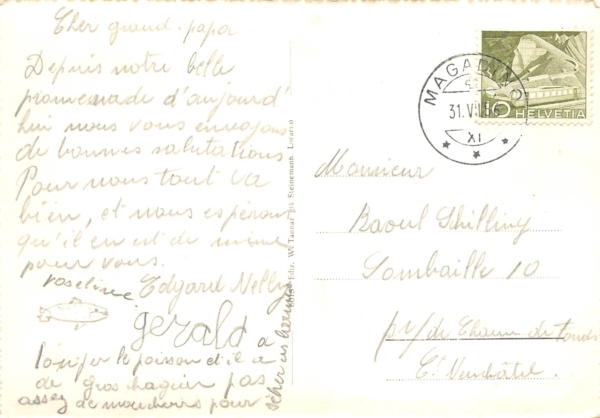 Cher grand-papa
Depuis notre belle
promenade d'aujourd'
hui nous vous envoyons
de bonnes salutations
Pour nous tout va
bien, et nous espérons
qu'il en est de même
pour vous.
roseline Edgard Nelly
gerald a
le poisson et il a
de gros pas
assez de pour
Steinemann, Locarno
MAGADINO
31.VII.56
XI
5
HELVETIA
Monsieur
Raoul Schilling
Sombaille 10
pr/de Chaux de fonds
Ct. Neuchâtel